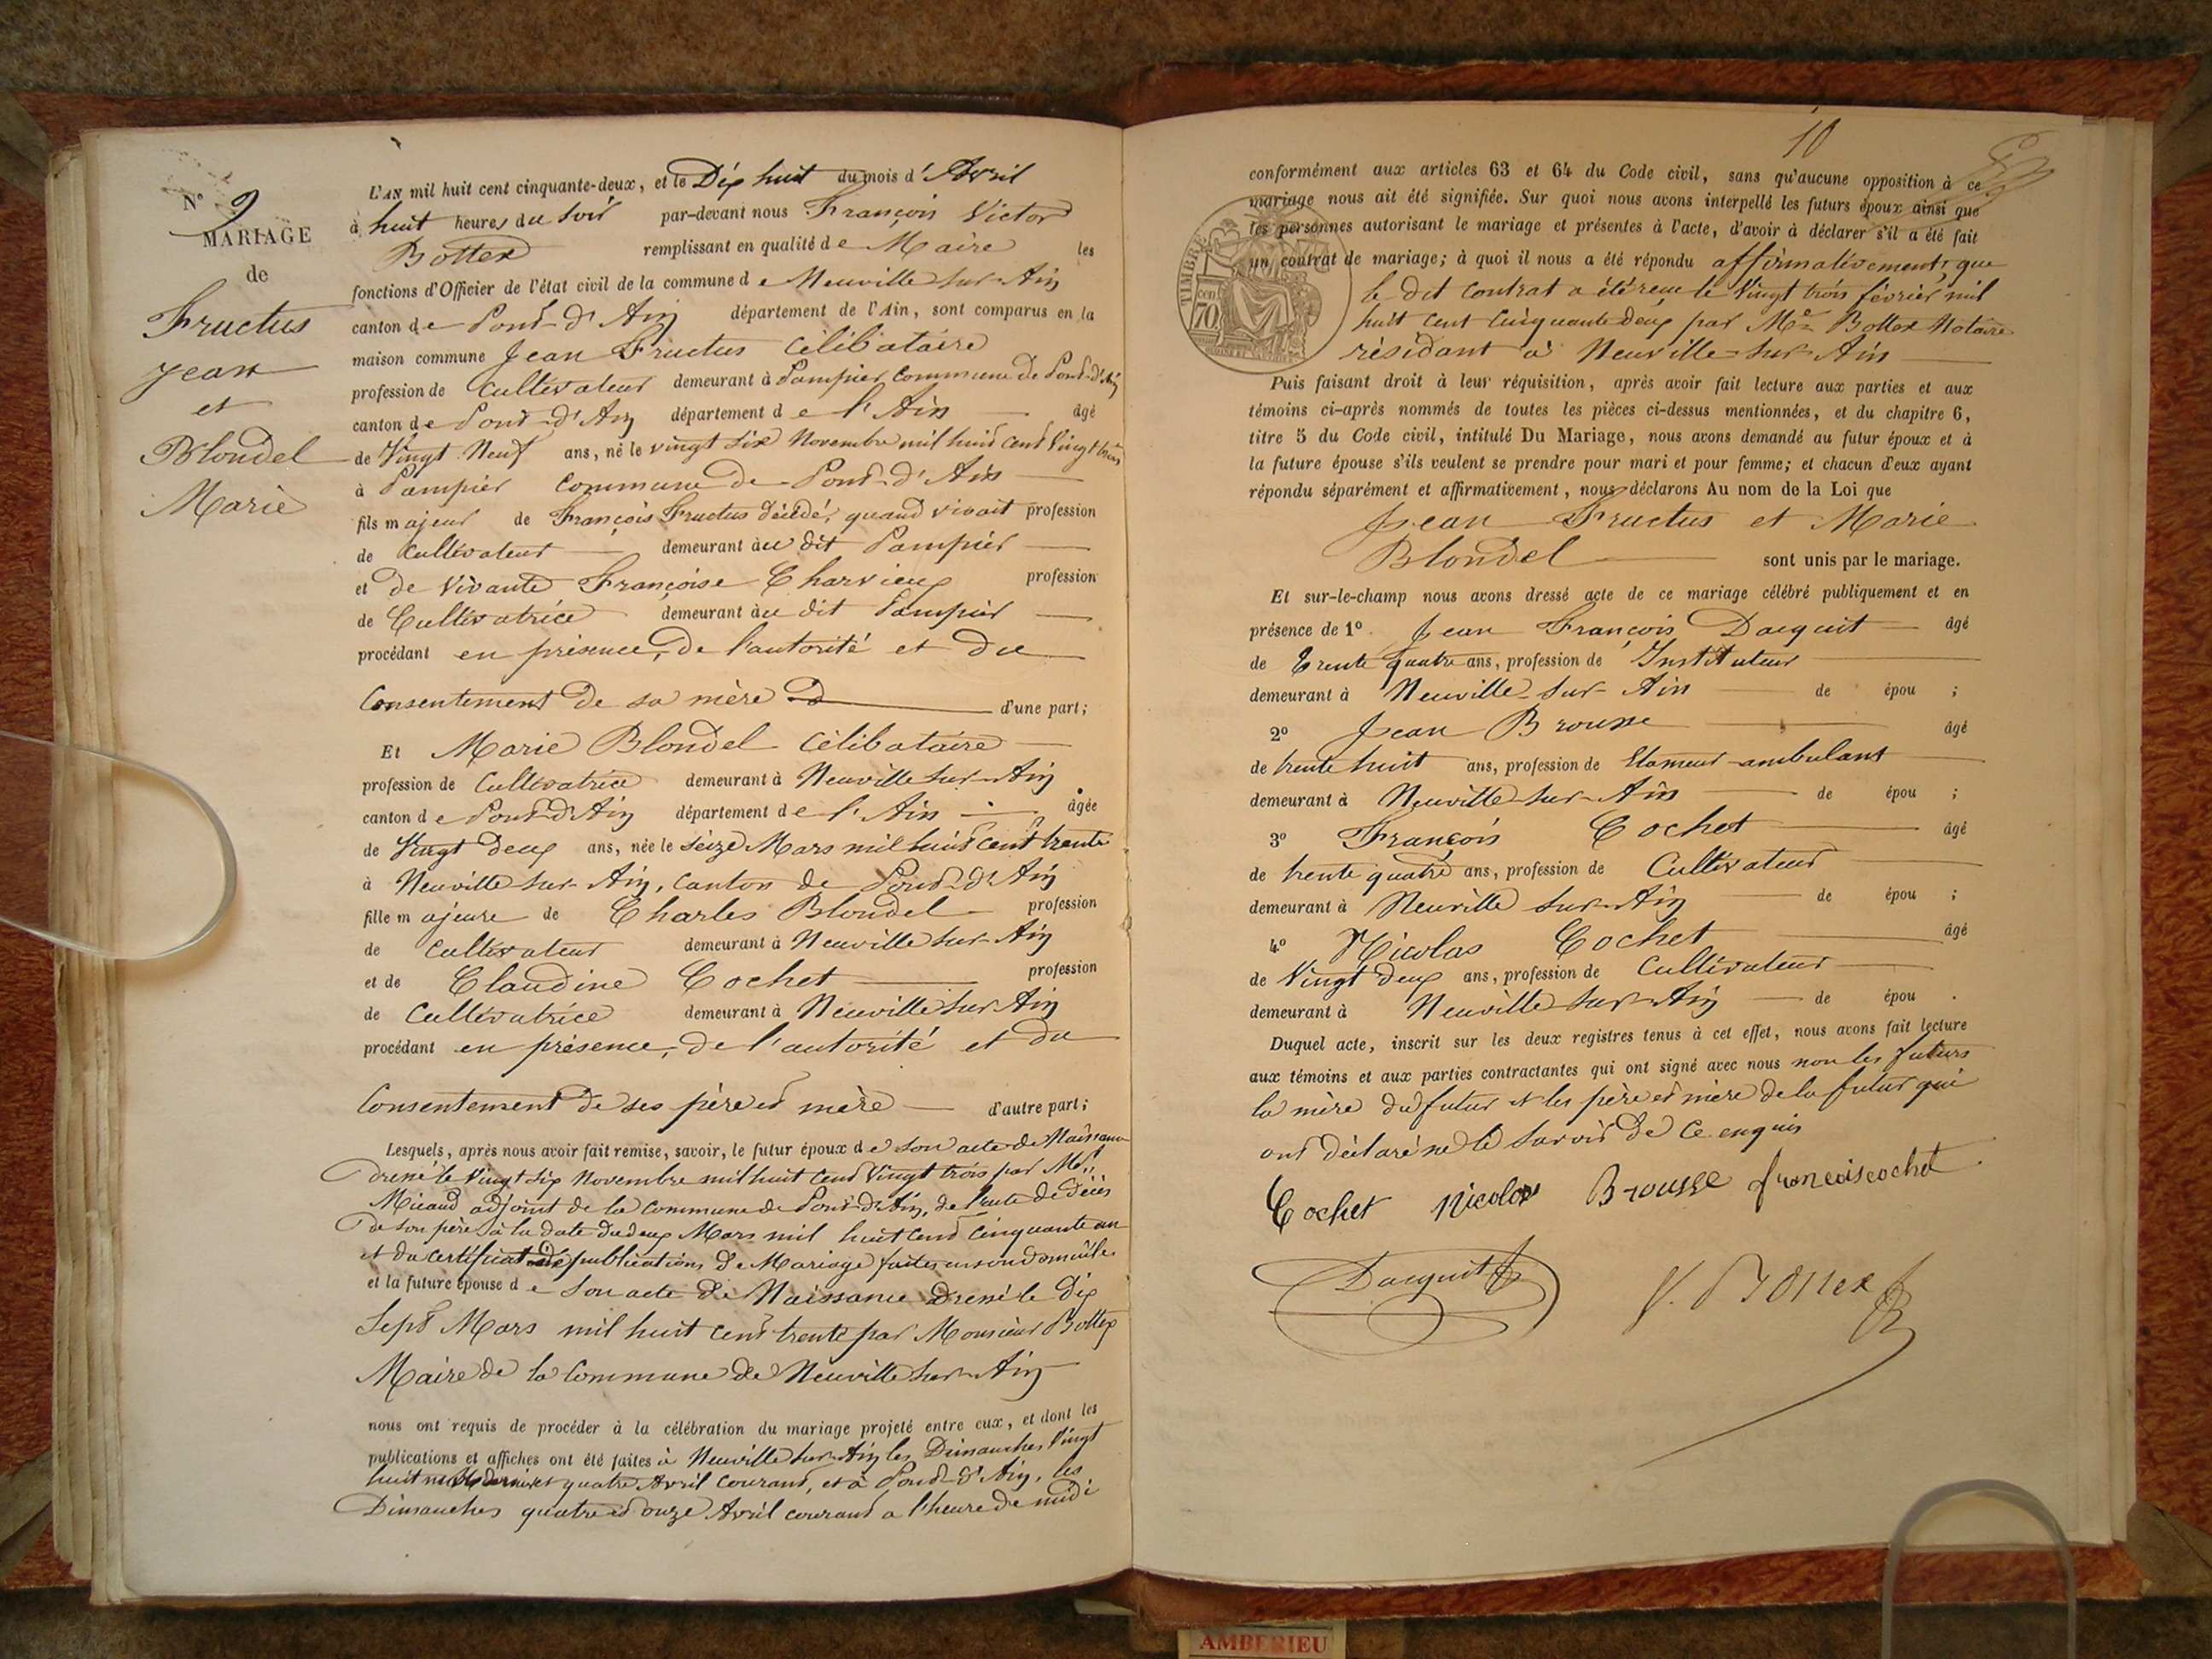 N° 9
MARIAGE
de
Fructus
Jean
et
Blondel
Marie
L'AN mil huit cent cinquante-deux, et le Dix huit du mois d'Avril
à huit heures du soir par-devant nous François Victor
Bottex remplissant en qualité de Maire les
fonctions d'Officier de l'état civil de la commune de Neuville sur Ain
canton de Pont-d'Ain département de l'Ain, sont comparus en la
maison commune Jean Fructus célibataire
profession de Cultivateur demeurant à Pampier Commune de Pont-d'Ain
canton de Pont-d'Ain département de l'Ain âgé
de Vingt Neuf ans, né le vingt six Novembre mil huit cent vingt trois
à Pampier Commune de Pont-d'Ain
fils majeur de François Fructus décédé, quand vivait profession
de Cultivateur demeurant au dit Pampier
et de vivante Françoise Charvieux profession
de Cultivatrice demeurant au dit Pampier
procédant en présence, de l'autorité et du
Consentement de sa mère d'une part;
Et Marie Blondel célibataire
profession de Cultivatrice demeurant à Neuville sur-Ain
canton de Pont-d'Ain département de l'Ain âgée
de Vingt deux ans, née le seize Mars mil huit cent trente
à Neuville sur-Ain, canton de Pont-d'Ain
fille majeure de Charles Blondel profession
de Cultivateur demeurant à Neuville sur-Ain
et de Claudine Cochet profession
de Cultivatrice demeurant à Neuville sur Ain
procédant en présence, de l'autorité et du
Consentement de ses père et mère d'autre part;
Lesquels, après nous avoir fait remise, savoir, le futur époux de son acte de Naissance
dressé le vingt six Novembre mil huit cent vingt trois par Mr
Micaud adjoint de la Commune de Pont-d'Ain, de l'acte de décès
de son père à la date du deux Mars mil huit cent cinquante un
et du certificat de publications de Mariage faites en son domicile
et la future épouse de son acte de Naissance dressé le dix
Sept Mars mil huit cent trente par Monsieur Bottex
Maire de la Commune de Neuville sur-Ain
nous ont requis de procéder à la célébration du mariage projeté entre eux, et dont les
publications et affiches ont été faites à Neuville sur-Ain les Dimanches Vingt
huit mars dernier et quatre Avril courant, et à Pont-d'Ain, les
Dimanches quatre et onze Avril courant a l'heure de midi
10
conformément aux articles 63 et 64 du Code civil, sans qu'aucune opposition à ce
mariage nous ait été signifiée. Sur quoi nous avons interpellé les futurs époux ainsi que
les personnes autorisant le mariage et présentes à l'acte, d'avoir à déclarer s'il a été fait
un contrat de mariage; à quoi il nous a été répondu affirmativement, que
le dit contrat a été reçu le vingt trois février mil
huit cent cinquante deux par Me Bottex Notaire
résidant à Neuville-sur-Ain
TIMBRE
70
Puis faisant droit à leur réquisition, après avoir fait lecture aux parties et aux
témoins ci-après nommés de toutes les pièces ci-dessus mentionnées, et du chapitre 6,
titre 5 du Code civil, intitulé Du Mariage, nous avons demandé au futur époux et à
la future épouse s'ils veulent se prendre pour mari et pour femme; et chacun d'eux ayant
répondu séparément et affirmativement, nous déclarons Au nom de la Loi que
Jean Fructus et Marie
Blondel sont unis par le mariage.
Et sur-le-champ nous avons dressé acte de ce mariage célébré publiquement et en
présence de 1° Jean François Dacquit âgé
de trente quatre ans, profession de Instituteur
demeurant à Neuville-sur-Ain de épou ;
2° Jean Brousse âgé
de trente huit ans, profession de Etameur-ambulant
demeurant à Neuville-sur-Ain de épou ;
3° François Cochet âgé
de trente quatre ans, profession de Cultivateur
demeurant à Neuville sur-Ain de épou ;
4° Nicolas Cochet âgé
de Vingt deux ans, profession de Cultivateur
demeurant à Neuville sur-Ain de épou .
Duquel acte, inscrit sur les deux registres tenus à cet effet, nous avons fait lecture
aux témoins et aux parties contractantes qui ont signé avec nous non les futurs
la mère du futur et les père et mère de la future qui
ont déclaré ne le savoir de ce enquis
Cochet Nicolas Brousse francoiscochet
Dacquit V. Bottex
AMBERIEU